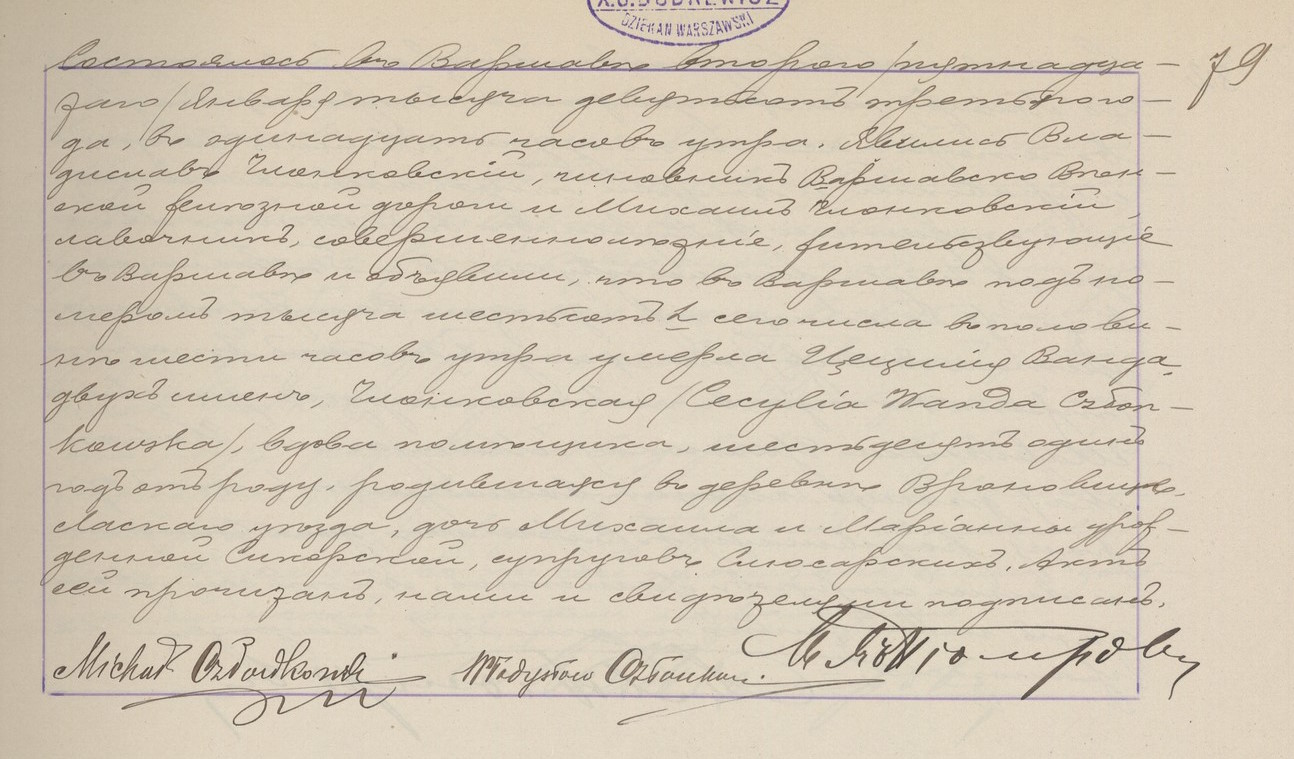 X.J.DUDREWICZ
DZIEKAN WARSZAWSKI
79
Состоялось въ Варшавѣ второго /пятнадца-
таго/ Января тысяча девятьсотъ третьяго го-
да, въ одинадцать часовъ утра. Явились Вла-
диславъ Члонковскій, чиновникъ Варшавско Вѣн-
ской желѣзной дороги и Михаилъ Члонковскій,
лавочникъ, совершеннолѣтніе, жительствующіе
въ Варшавѣ и объявили, что въ Варшавѣ подъ но-
меромъ тысяча шестьсотъ h сего числа въ полови-
нѣ шести часовъ утра умерла Цецилія Ванда,
двухъ именъ, Члонковская /Cecylia Wanda Człon-
kowska/, вдова помѣщика, шестьдесятъ одинъ
годъ отъ роду, родившаяся въ деревнѣ
Ласкаго уѣзда, дочь Михаила и Маріанны урож-
денной Сикорской, супруговъ Слюсарскихъ. Актъ
сей прочитанъ, нами и свидѣтелями подписанъ.
Michał Członkowski Władysław Członkow.